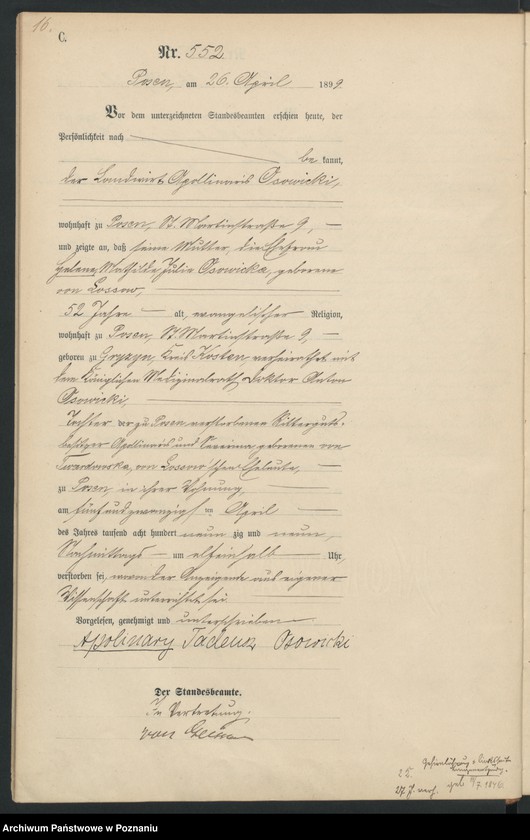 16.
C.
Nr. 552
Posen, am 26. April 1899
Vor dem unterzeichneten Standesbeamten erschien heute, der
Persönlichkeit nach
be kannt,
der Landwirt Apollinaris Osowicki,
wohnhaft zu Posen, St. Martinstraße 9,
und zeigte an, daß seine Mutter, die Ehefrau
Helene Mathilde Julie Osowicka, geborene
von Lossow,
52 Jahre alt, evangelischer Religion,
wohnhaft zu Posen, St. Martinstraße 9,
geboren zu Gryzyn, Kreis Kosten, verheirathet mit
dem Königlichen Medizinalrath Doktor Anton
Osowicki,
Tochter der zu Posen verstorbenen Ritterguts-
besitzer Apollinaris und Severina, geborenen von
Twardowska, von Lossow'schen Eheleute,
zu Posen in ihrer Wohnung,
am fünfundzwanzigsten April
des Jahres tausend acht hundert neun zig und neun,
Nachmittags um elfeinhalb Uhr,
verstorben sei, wovon der Anzeigende aus eigener
Wissenschaft unterrichtet sei
Vorgelesen, genehmigt und unterschrieben
Apolinary Tadeusz Osowicki
Der Standesbeamte.
In Vertretung.
von
27 J. verh. geb. 9/7 1846
Archiwum Państwowe w Poznaniu